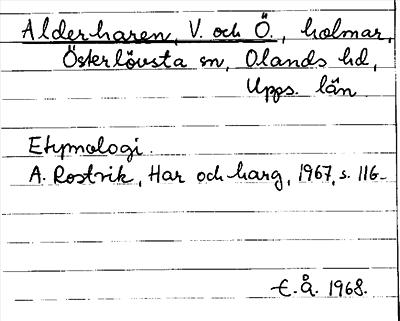 Alderharen, V. och Ö., holmar,
Österlövsta sn, Olands hd,
Upps. län.
Etymologi.
A. Rostvik, Har och harg, 1967, s. 116-
E. Å. 1968.